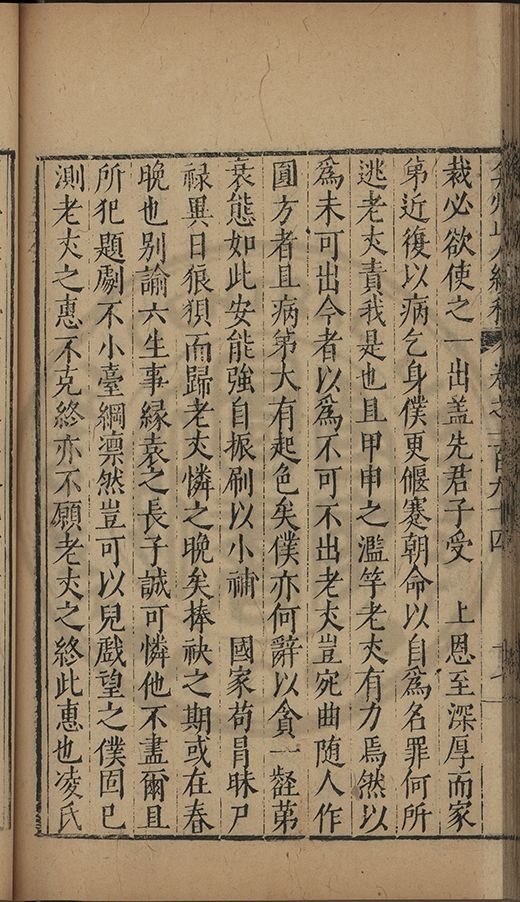 弇州山人續稿 卷之一百九十四
裁必欲使之一出盖先君子受 上恩至深厚而家
第近復以病乞身僕更偃蹇朝命以自爲名罪何所
逃老夾責我是也且甲申之濫竽老夾有力焉然以
爲未可出今者以爲不可不出老夾豈宛曲隨人作
圓方者且病第大有起色矣僕亦何辭以貪一壑苐
衰態如此安能強自振刷以小補 國家苟冐昧尸
祿異日狼狽而歸老夾憐之晚矣捧袂之期或在春
晚也别諭六生事縁袁之長子誠可憐他不盡爾且
所犯題劇不小臺綱凛然豈可以兒戲望之僕固已
測老夾之惠不克終亦不願老夾之終此惠也凌氏